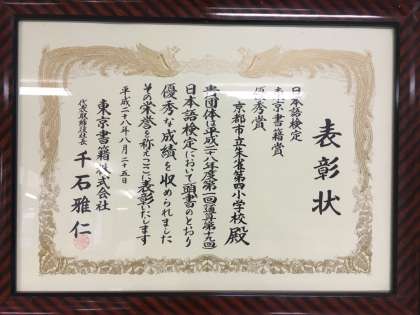 表彰状
日本語検定
東京書籍賞
優秀賞
京都市立朱雀第四小学校殿
貴団体は平成二十八年度第一回(通算第十九回)
日本語検定において頭書のとおり
優秀な成績を収められました
その栄誉を称えここに表彰いたします
平成二十八年八月二十五日
東京書籍株式会社
代表取締役社長 千石雅仁